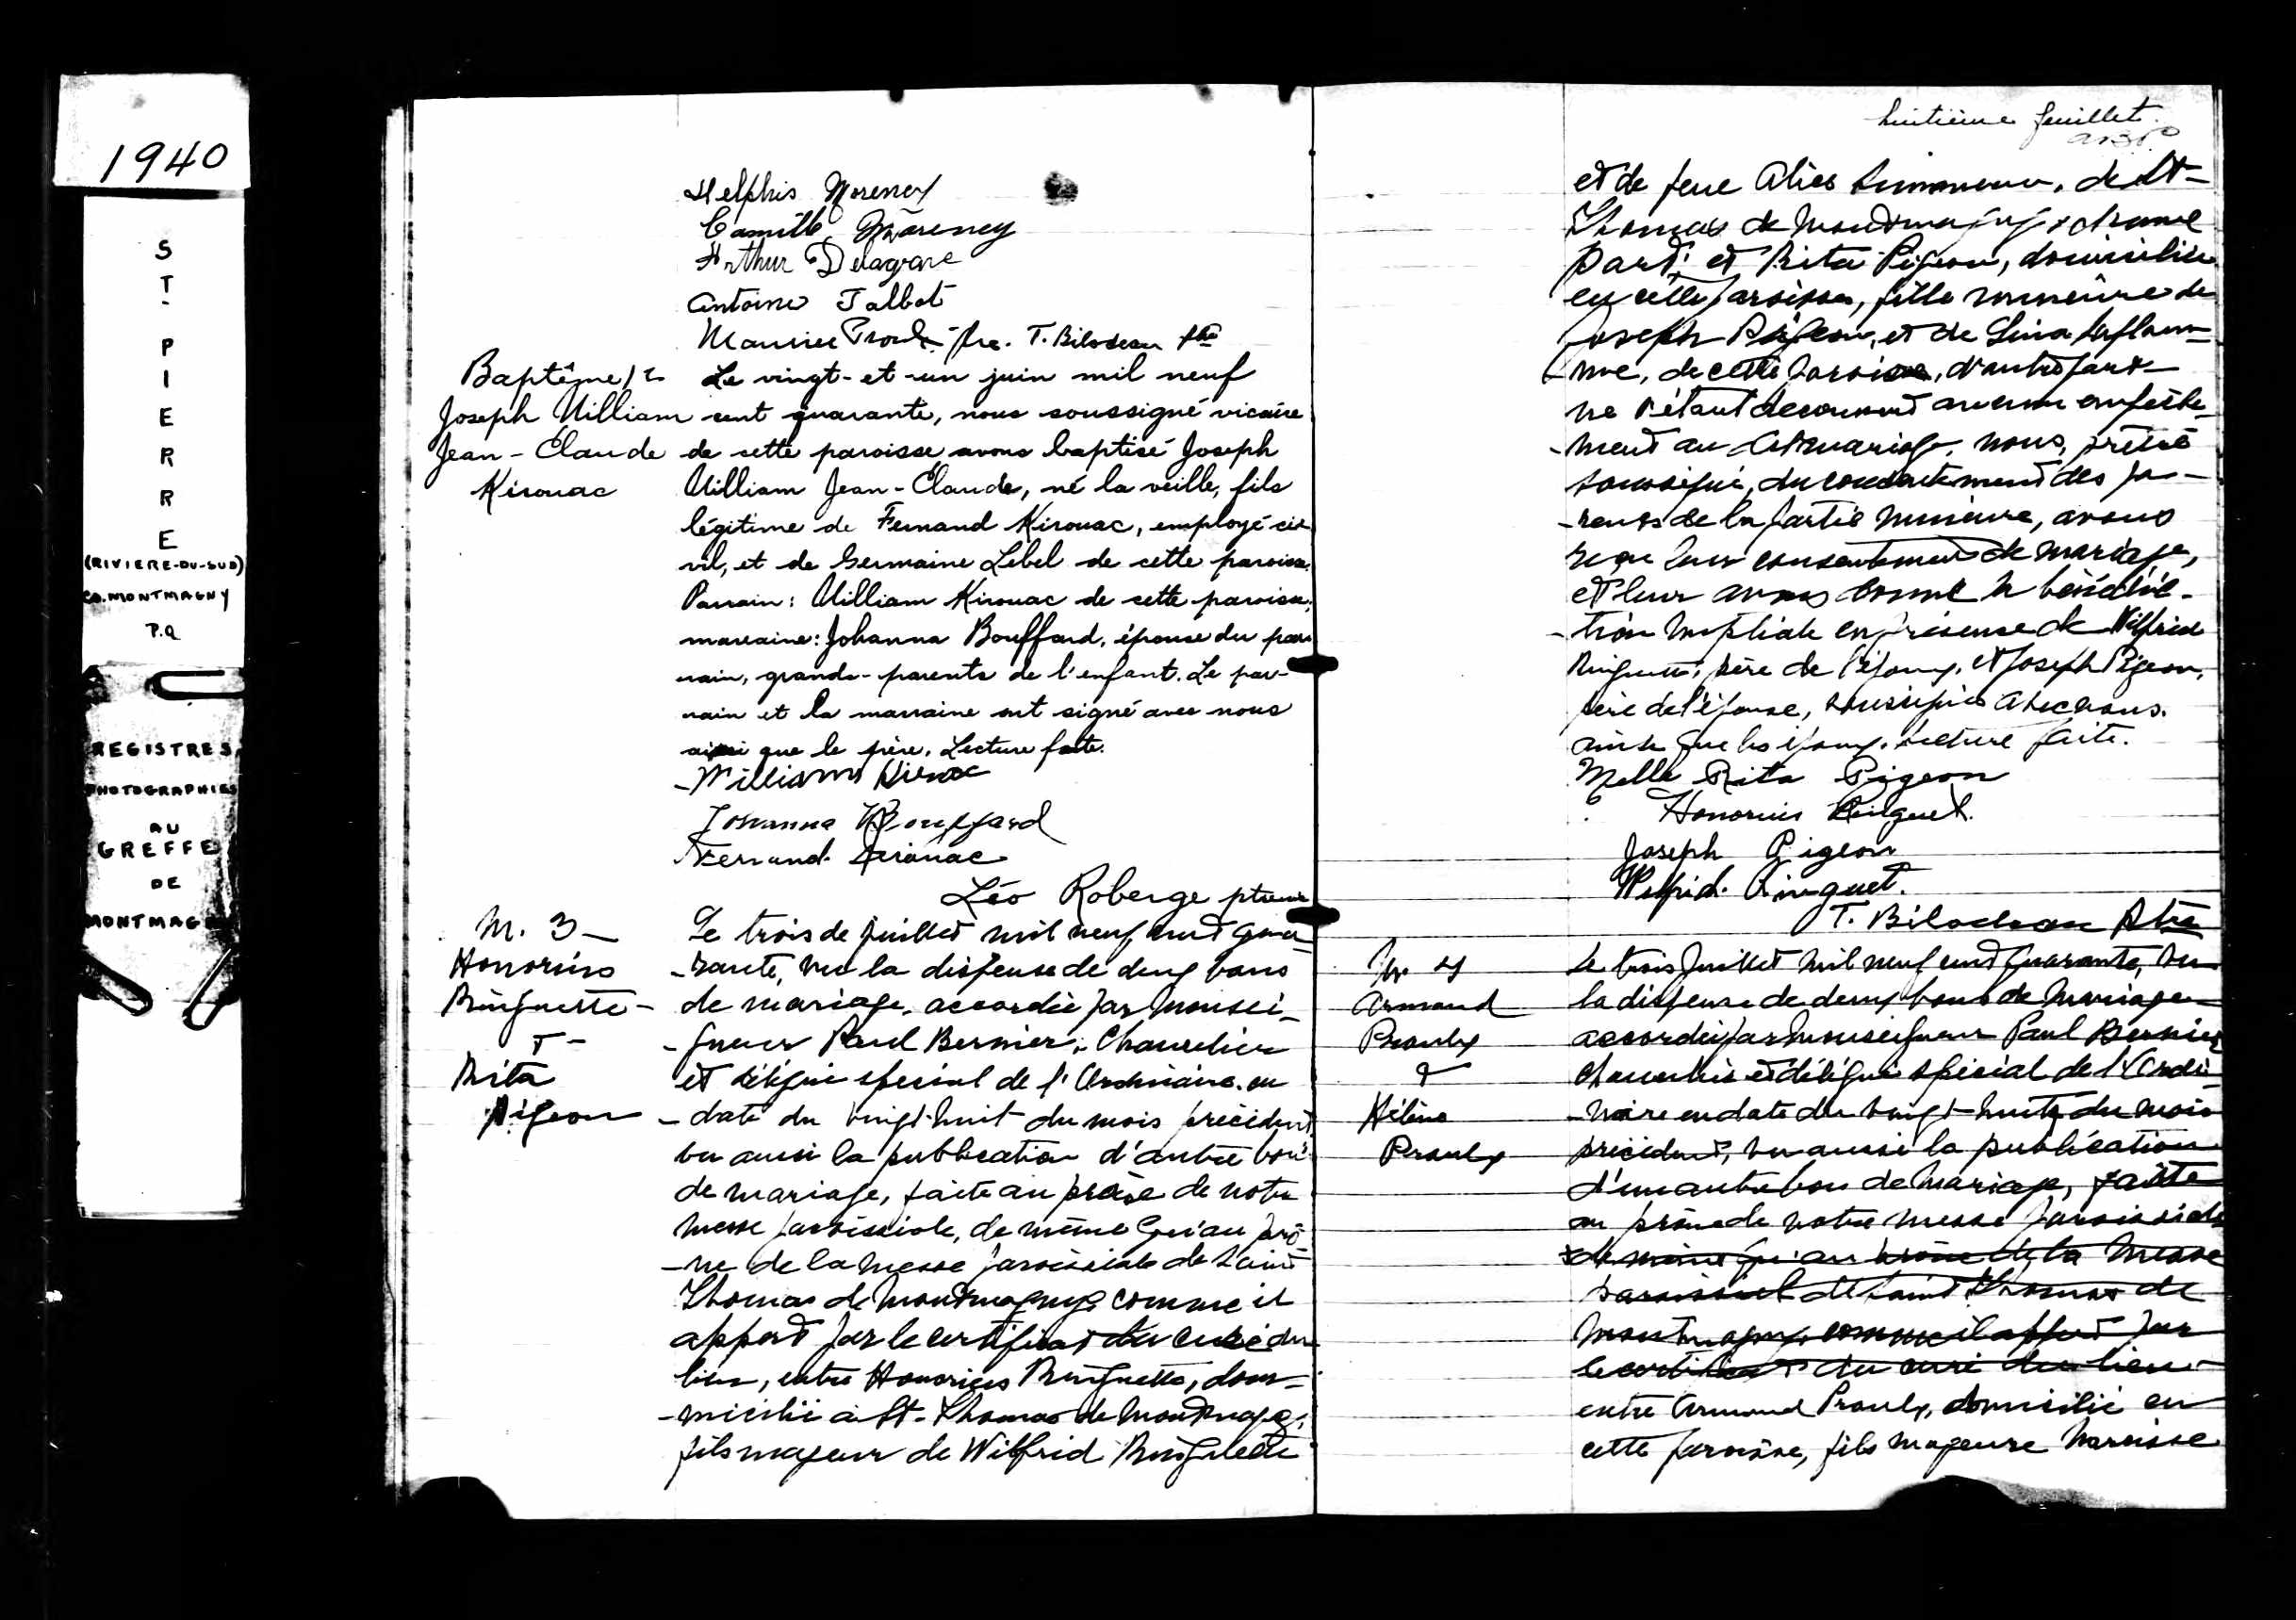 1940
ST-PIERRE
(RIVIERE-DU-SUD)
CO. MONTMAGNY
P.Q
REGISTRES
PHOTOGRAPHIES
AU
GREFFE
DE
MONTMAGNY
Morency
Camille Morency
Arthur Delagrave
Antoine Talbot
Maurice Proulx ptre. T. Bilodeau ptre
Baptême 12
Joseph William
Jean-Claude
Kirouac
Le vingt-et-un juin mil neuf
cent quarante, nous soussigné vicaire
de cette paroisse avons baptisé Joseph
William Jean-Claude, né la veille, fils
légitime de Fernand Kirouac, employé ci-
vil, et de Germaine Lebel de cette paroisse.
Parrain: William Kirouac de cette paroisse,
marraine: Johanna Bouffard, épouse du par-
rain, grands-parents de l'enfant. Le par-
rain et la marraine ont signé avec nous
ainsi que le père. Lecture faite.
William Kirouac
Johanna Bouffard
Fernand Kirouac
Léo Roberge ptre
M. 3
Honorius
Ringuette
+
Rita
Pigeon
Le trois de juillet mil neuf cent qua-
-rante, vu la dispense de deux bans
de mariage, accordée par Monsei-
-gneur Paul Bernier, Chancelier
et délégué spécial de l'Ordinaire en
-date du vingt-huit du mois précédent
vu aussi la publication d'autre ban
de mariage, faite au prône de notre
messe paroissiale, de même qu'au prô-
-ne de la messe paroissiale de Saint
Thomas de Montmagny comme il
appert par le certificat du curé du
lieu, entre Honorius Ringuette, dom-
-micilié à St-Thomas de Montmagny,
fils majeur de Wilfrid Ringuette
huitième feuillet.
et de feue de St-
Thomas de Montmagny d'une
part; et Rita Pigeon, domiciliée
en cette paroisse, fille mineure de
Joseph Pigeon, et de Lina Laflam-
me, de cette paroisse, d'autre part
ne s'étant découvert aucun empêche-
-ment au dit mariage, nous, prêtre
soussigné, du consentement des pa-
-rents de la partie mineure, avons
reçu leur consentement de mariage,
et leur avons donné la bénédic-
-tion nuptiale en présence de Wilfrid
Ringuette, père de l'époux, et Joseph Pigeon,
père de l'épouse, soussignés avec nous.
ainsi que les époux. Lecture faite.
Melle Rita Pigeon
Honorius Ringuet.
Joseph Pigeon
Wilfrid Ringuet.
T. Bilodeau Ptre
M. 4
Armand
Proulx
&
Hélène
Proulx
Le trois juillet mil neuf cent quarante, vu
la dispense de deux bans de mariage
accordée par Monseigneur Paul Bernier
Chancelier et délégué spécial de l'Ordi-
-naire en date du vingt-huit du mois
précédent, vu aussi la publication
d'un autre ban de mariage, faite
au prône de notre messe paroissiale
de même qu'au prône de la messe
paroissiale de Saint Thomas de
Montmagny, comme il appert par
le certificat du curé du lieu
entre Armand Proulx, domicilié en
cette paroisse, fils majeure Narcisse